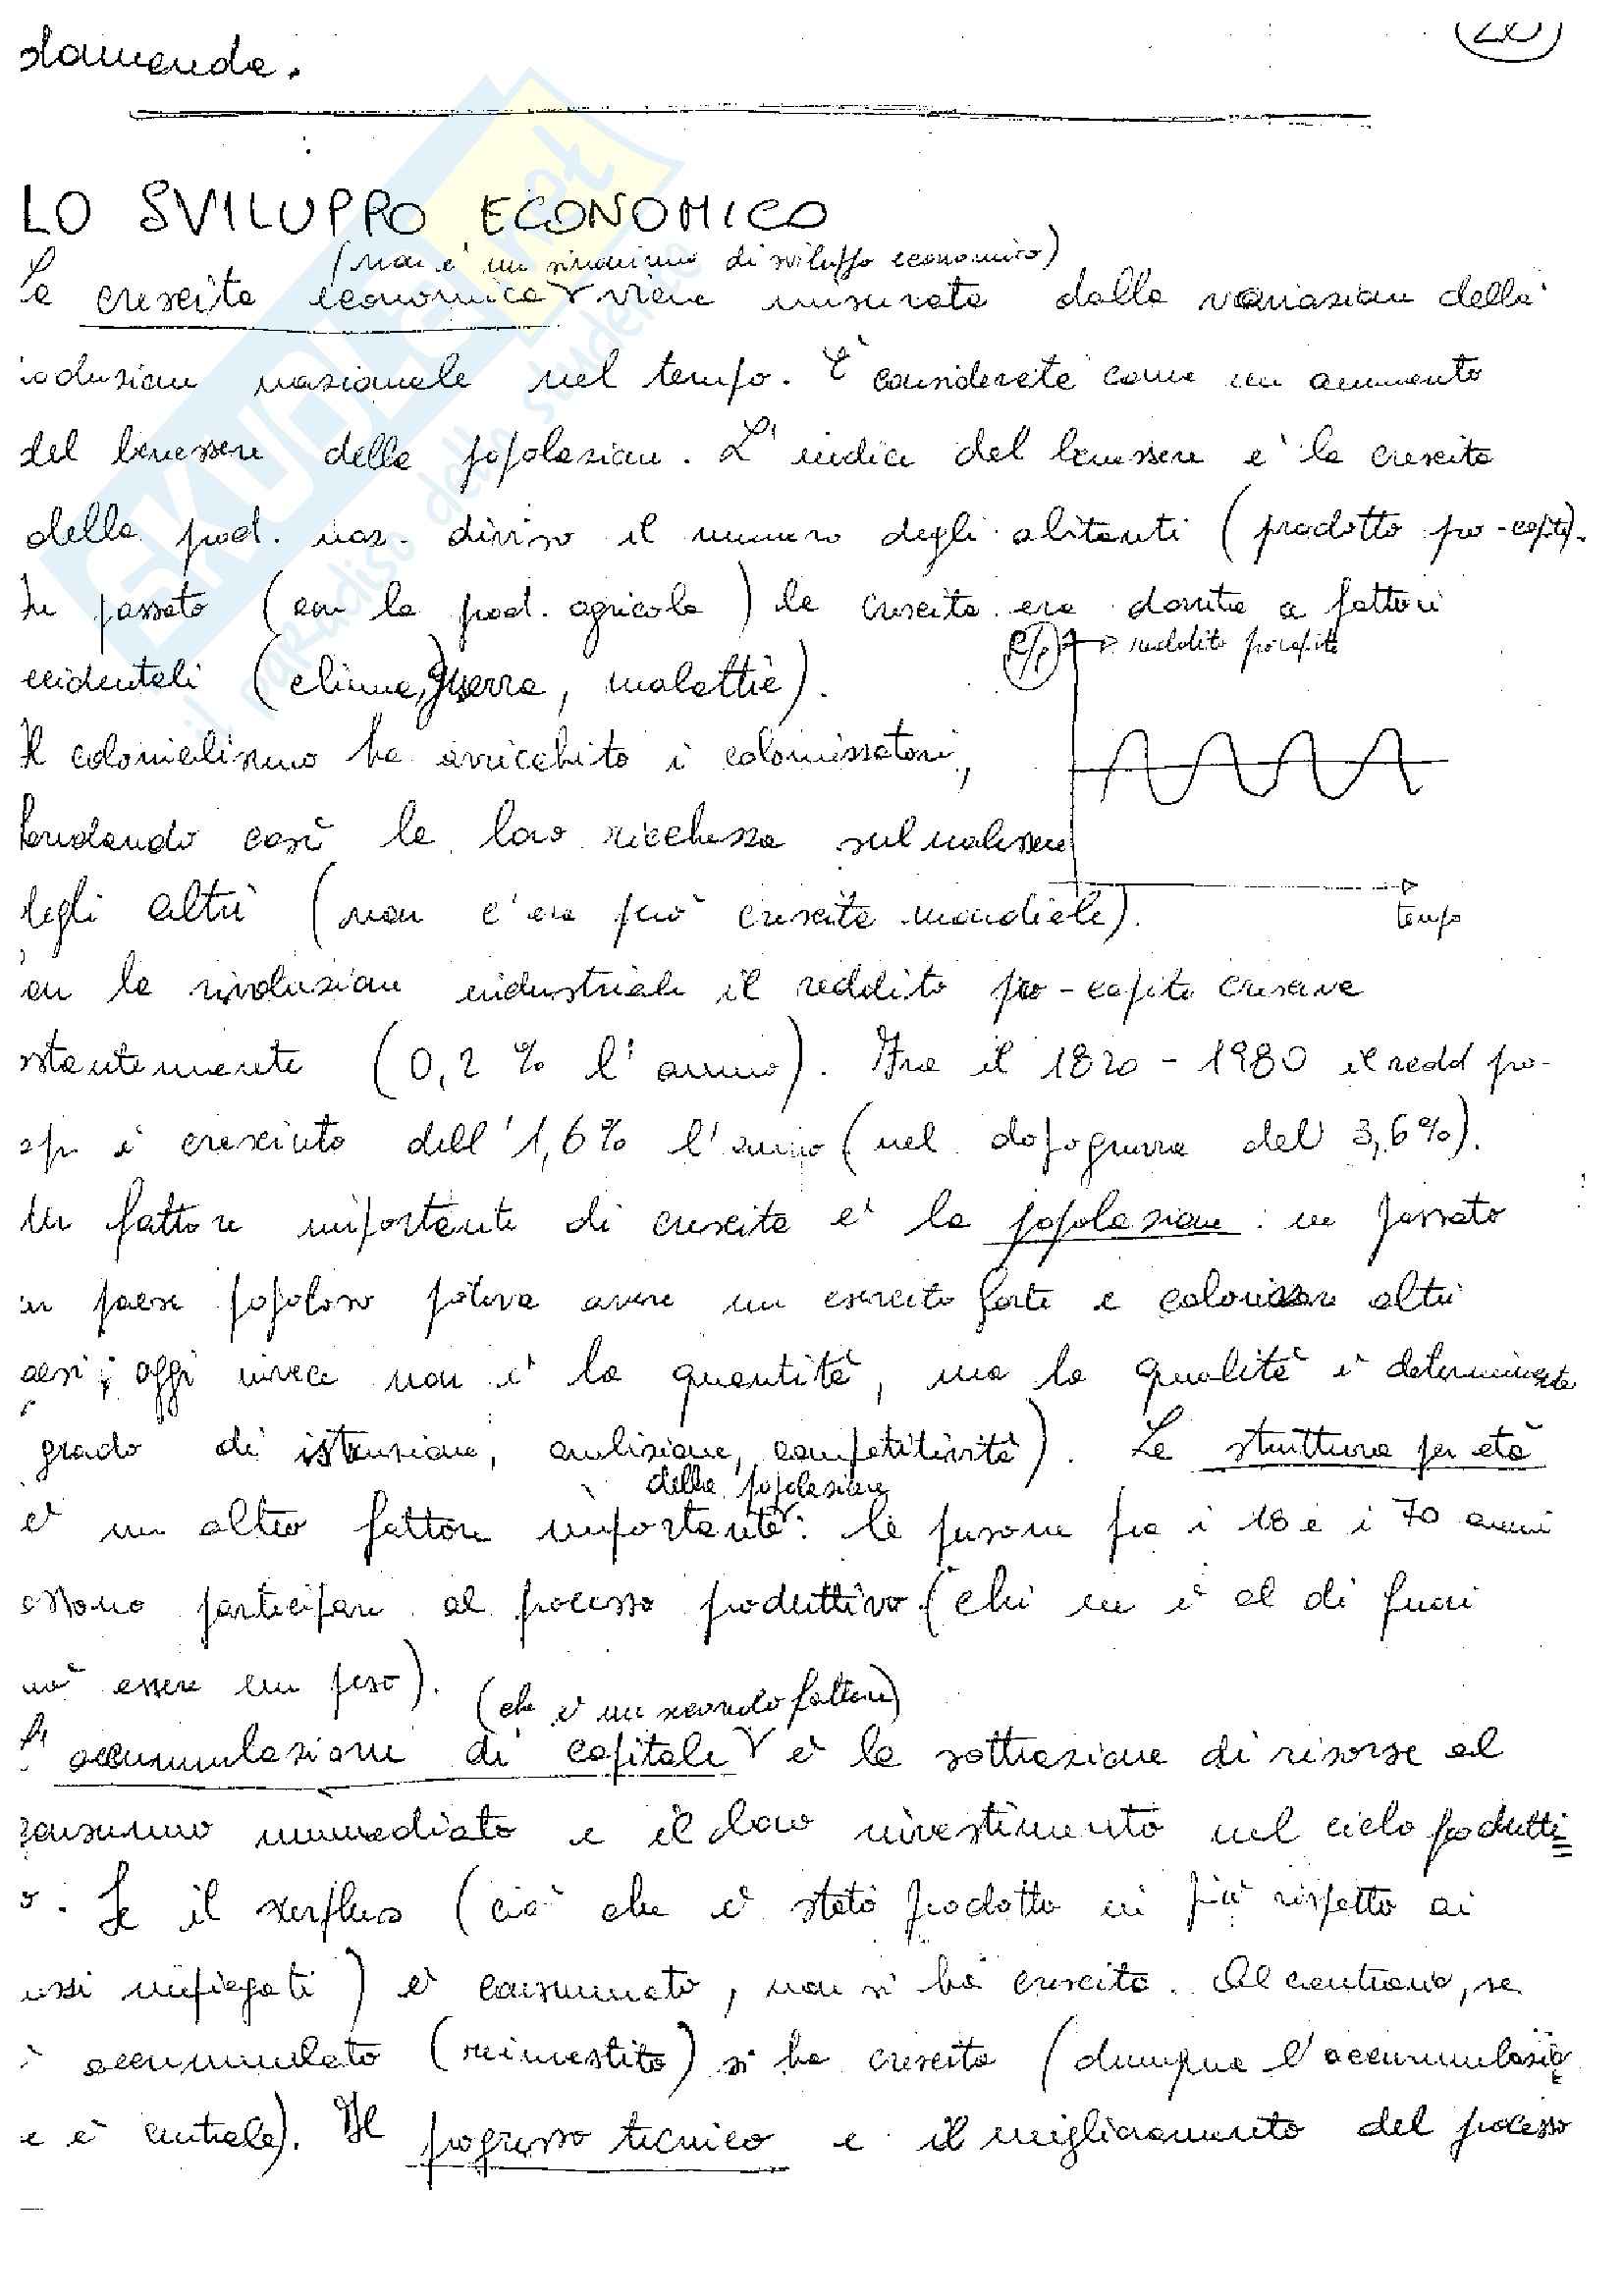 domanda.
LO SVILUPPO ECONOMICO
(non è un sinonimo di sviluppo economico)
La crescita economica viene misurata dalla variazione della
produzione nazionale nel tempo. È considerata come un aumento
del benessere della popolazione. L'indice del benessere è la crescita
della prod. naz. diviso il numero degli abitanti (prodotto pro-capite).
In passato (con la prod. agricola) la crescita era dovuta a fattori
R/P → reddito pro capite
accidentali (clima, guerra, malattie).
Il colonialismo ha arricchito i colonizzatori,
fondando così la loro ricchezza sul malessere
degli altri (non c'era però crescita mondiale).
tempo
con la rivoluzione industriale il reddito pro-capite cresceva
stantemente (0,2 % l'anno). Fra il 1820 - 1980 il redd pro-
cap. è cresciuto dell'1,6% l'anno (nel dopoguerra del 3,6%).
Un fattore importante di crescita è la popolazione: in passato
un paese popoloso poteva avere un esercito forte e colonizzare altri
paesi; oggi invece non è la quantità, ma la qualità è determinante
grado di istruzione, ambizione, competitività). La struttura per età
della popolazione
è un altro fattore importante: le persone fra i 18 e i 70 anni
possono partecipare al processo produttivo (chi ne è al di fuori
può essere un peso).
(che è un secondo fattore)
L'accumulazione di capitale è la sottrazione di risorse al
consumo immediato e il loro investimento nel ciclo produtti=
vo. Se il surplus (ciò che è stato prodotto in più rispetto ai
mezzi impiegati) è consumato, non si ha crescita. Al contrario, se
è accumulato (reinvestito) si ha crescita (dunque l'accumulazio=
ne è centrale). Il progresso tecnico è il miglioramento del processo
SKUOLA.net
il paradiso dello studente